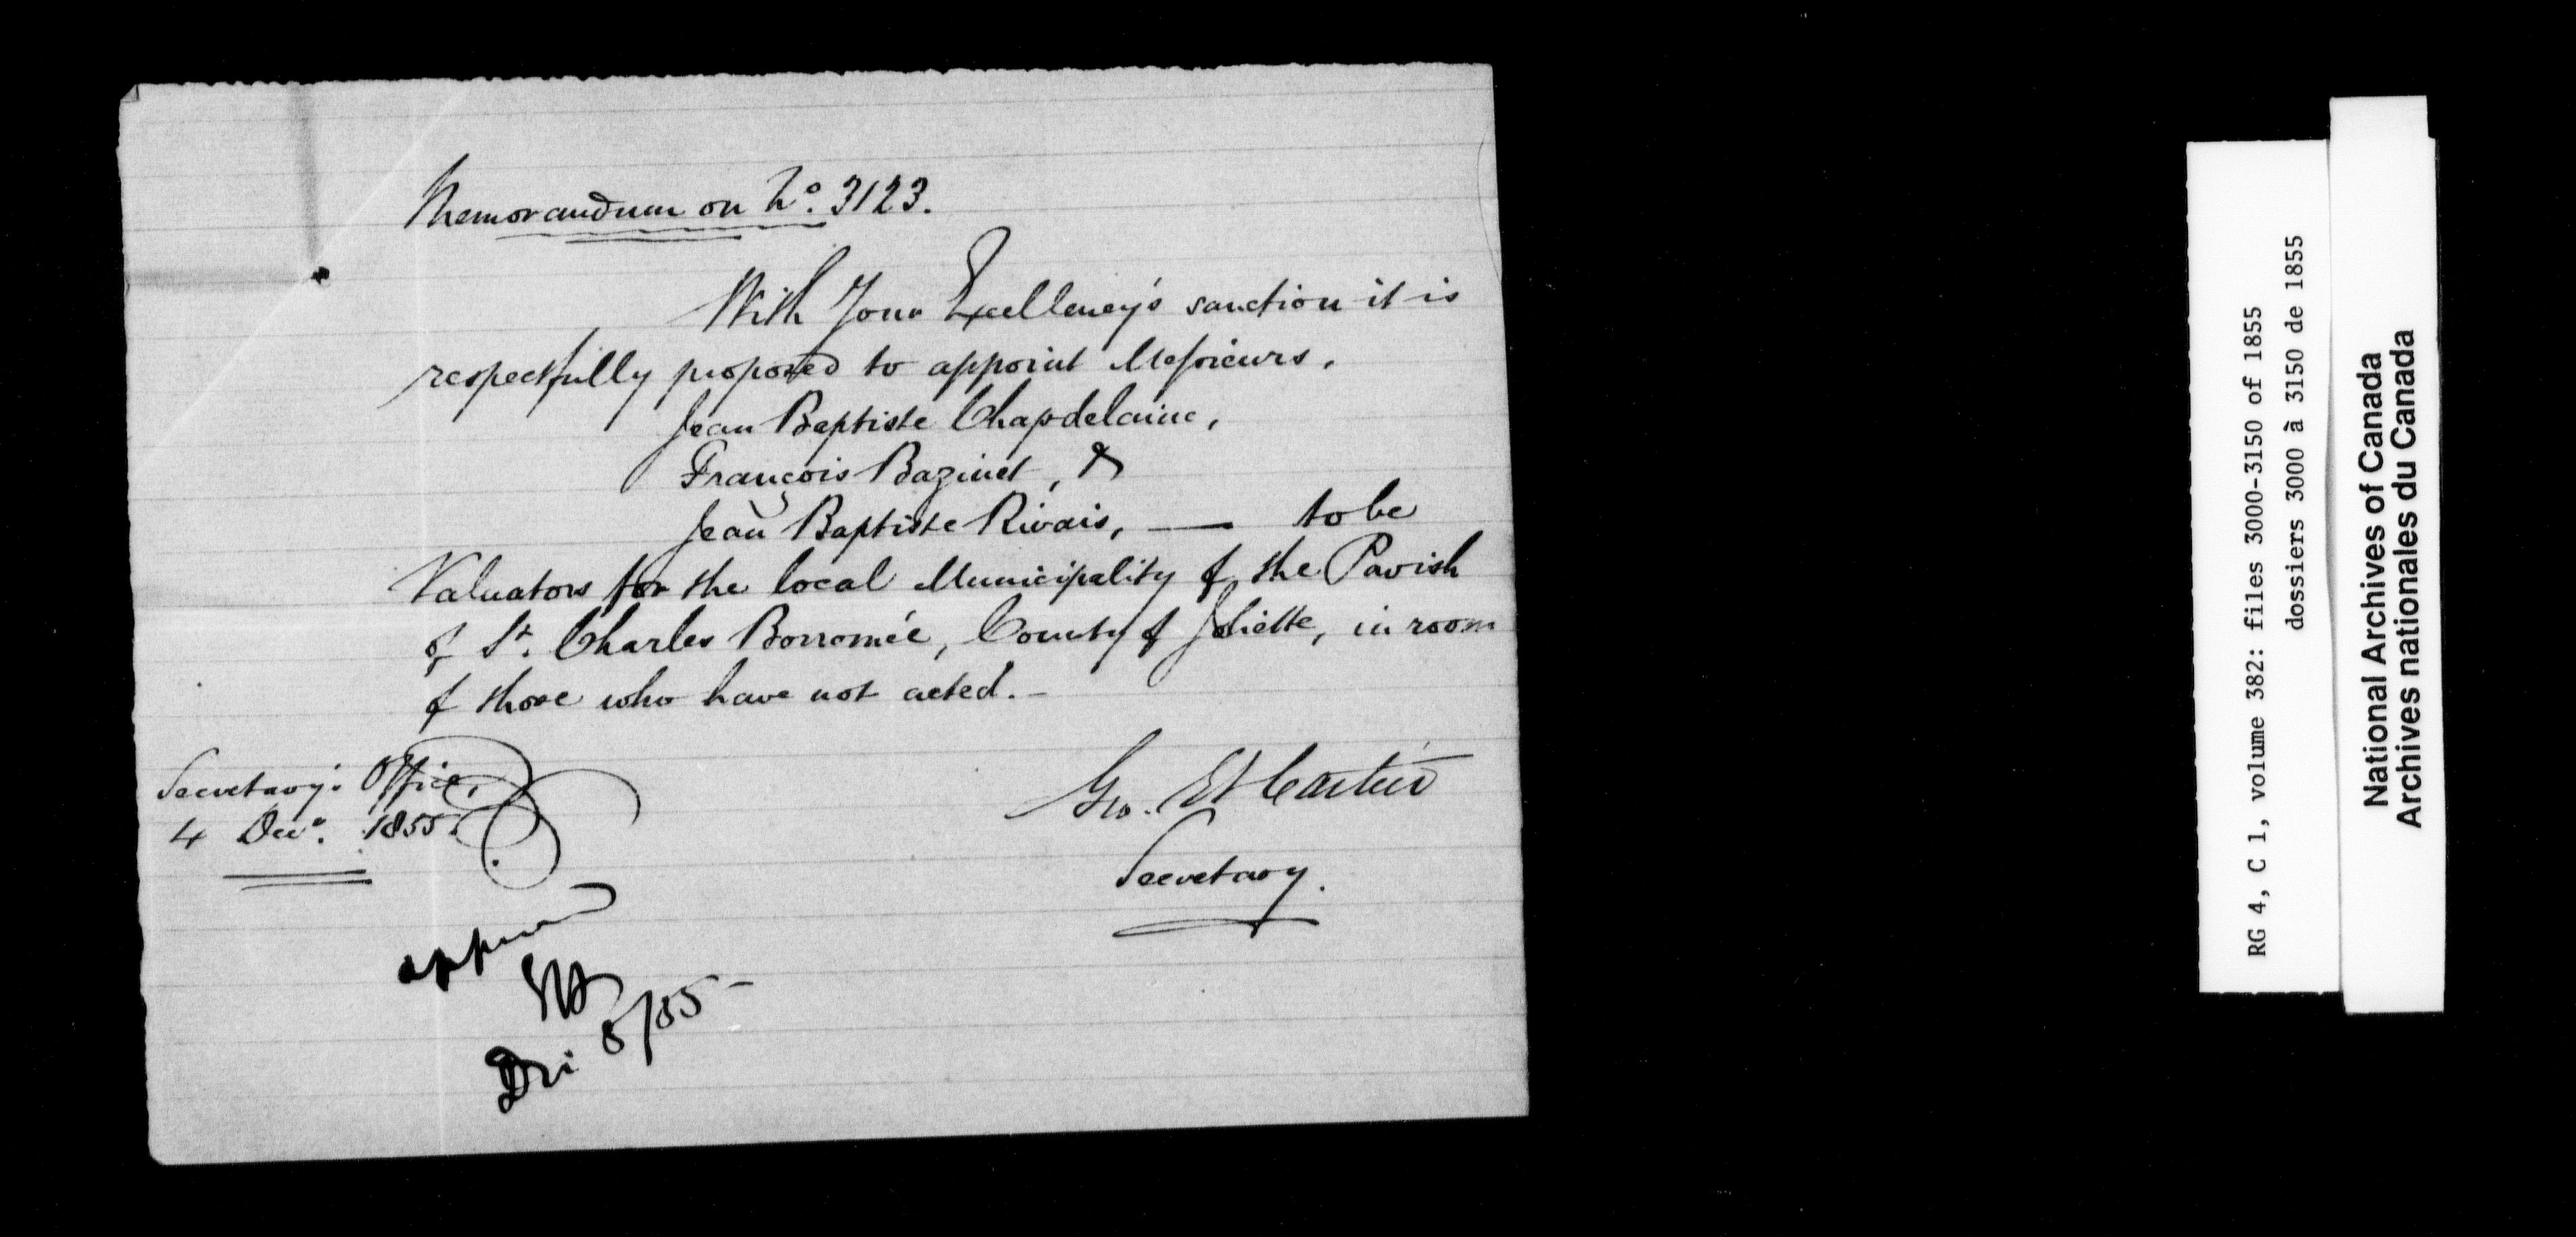 Memorandum on No. 3123.
With Your Excellency's sanction it is
respectfully proposed to appoint Messieurs,
Jean Baptiste Chapdelaine,
François Bazinet, &
Jean Baptiste Rivais, — to be
Valuators for the local Municipality of the Parish
of St. Charles Borromée, County of Joliette, in room
of those who have not acted. -
Secretary's Office,
4 Decr. 1855.
Geo. Et Cartier
Secretary.
8/55 -
RG 4, C 1, volume 382: files 3000-3150 of 1855
dossiers 3000 à 3150 de 1855
National Archives of Canada
Archives nationales du Canada